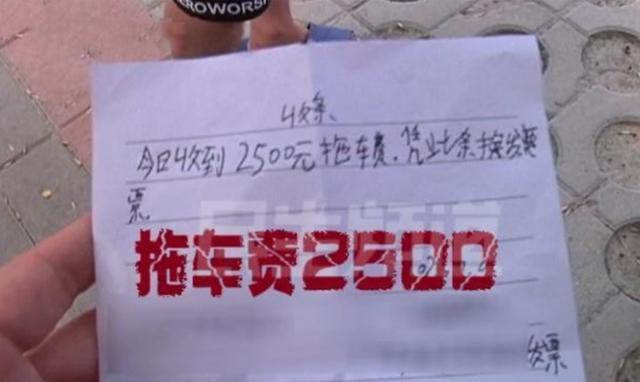 EROWORS
收条
今日收到2500元拖车费.凭此条换发票
票
拖车费2500
发票